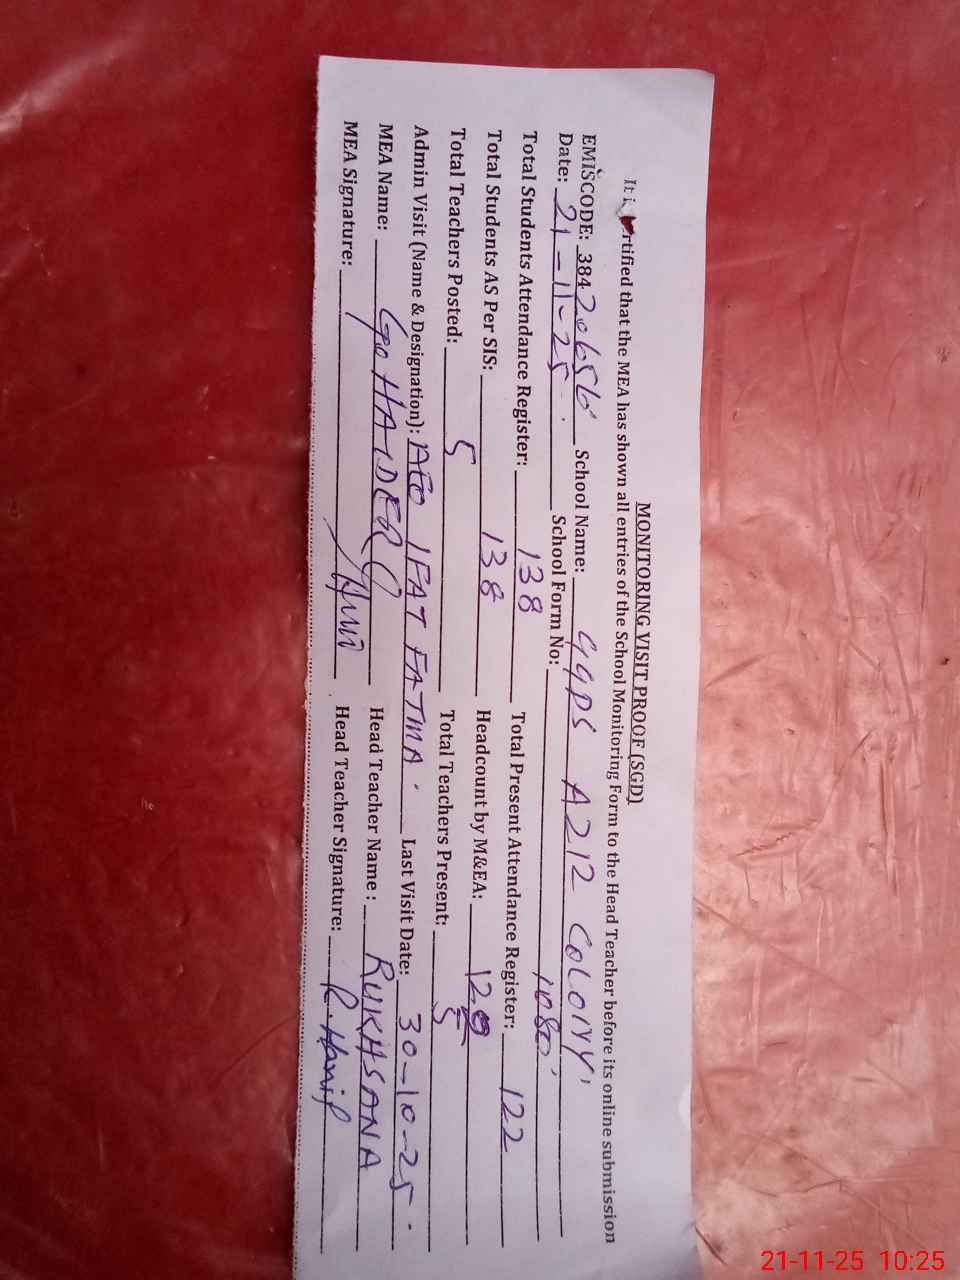 MONITORING VISIT PROOF (SGD)
It is certified that the MEA has shown all entries of the School Monitoring Form to the Head Teacher before its online submission
EMISCODE: 38420656 School Name: GGPS AZIZ COLONY
Date: 21-11-25 School Form No: 1080
Total Students Attendance Register: 138 Total Present Attendance Register: 122
Total Students AS Per SIS: 138 Headcount by M&EA:
Total Teachers Posted: 5 Total Teachers Present: 5
Admin Visit (Name & Designation): AEO IFAT FATMA. Last Visit Date: 30-10-25.
MEA Name: HAIDER Head Teacher Name: RUKHSANA
MEA Signature: Head Teacher Signature: R. Hanif
21-11-25 10:25